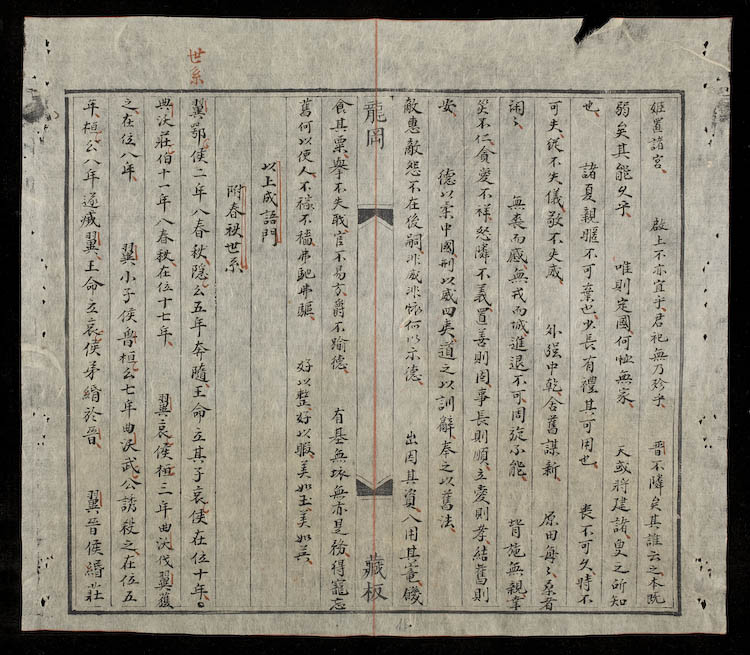 姬置諸宮 敢上不亦宜乎 君祀無乃殄乎 晉不隣矣其誰云之本既
弱矣其能久乎 唯則定國 何恤無家 天或將建諸 臾之所知
也 諸夏親暱不可棄也 少長有禮其可用也 喪不可久時不
可失 從不失儀敬不失威 外强中乾 舍舊謀新 原田每〻 桑者
閑〻 無喪而慼無戎而城 進退不可周旋不能 背施無親幸
災不仁貪愛不祥怒隣不義 置善則固事長則順立愛則孝結舊則
安 德以柔中國刑以威四夷 道之以訓辭奉之以舊法
敵惠敵怨不在後嗣 非威非懷何以示德 出因其資入用其寵饑
龍岡
藏板
食其粟 舉不失职官不易方爵不踰德 有基無坏無亦是務 得寵忘
舊何以使人 不穡不穡弗馳弗驅 好以整好以暇 美如玉美如英
以上成語門
附春秋世系
世系
翼鄂侯二年八春秋隱公五年奔隨王命立其子哀侯在位十年
曲沃莊伯十一年八春秋在位十七年 翼哀侯桓三年曲沃伐翼獲
之在位八年 翼小子侯魯桓公七年曲沃武公誘殺之在位五
年桓公八年遂滅翼王命立哀侯弟緡於晉 翼晉侯緡莊